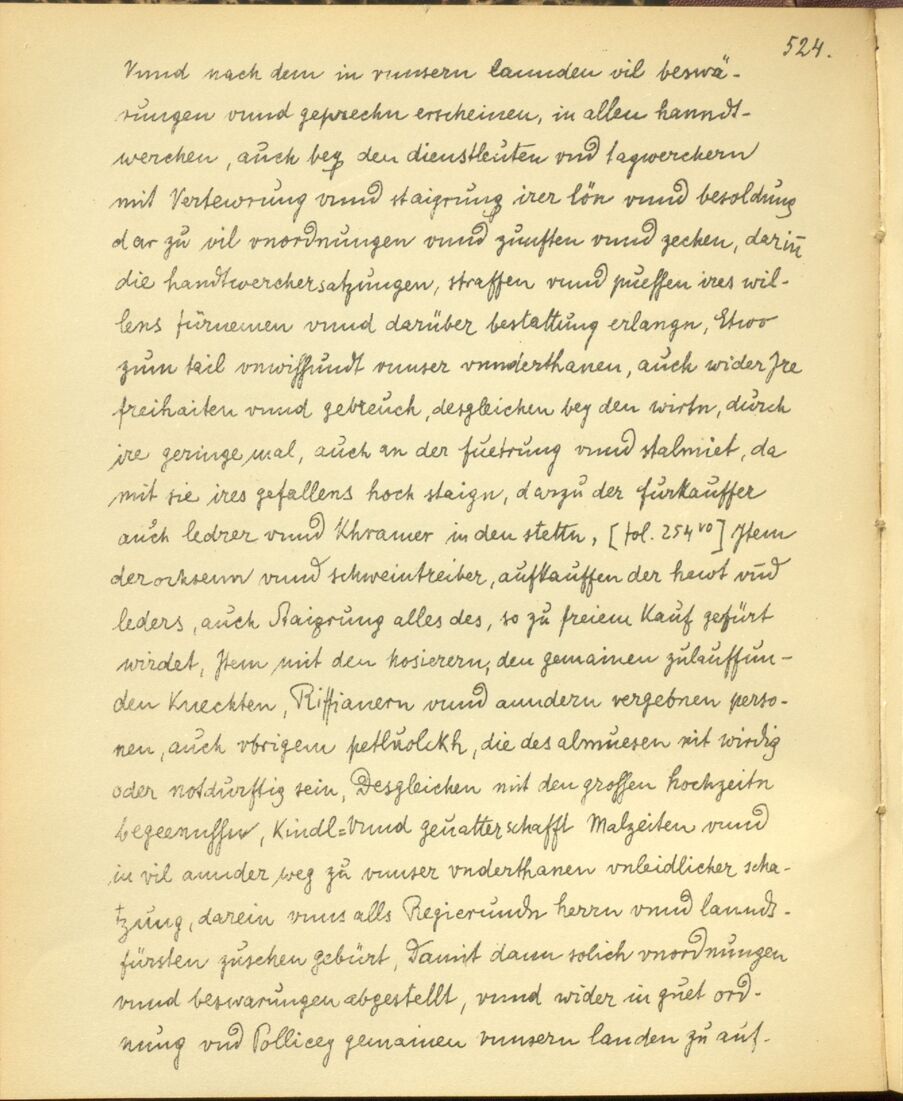 524.
Vnnd nach dem in vnnsern lannden vil beswä-
rungen vnnd geprechn erscheinen, in allen hanndt-
werchen, auch bey den dienstleuten vnd tagwerchern
mit Vertewrung vnnd staigrung irer lön vnnd besoldung
dar zu vil vnordnungen vnnd zunften vnnd zechen, darin̄
die handtwerchersatzungen, straffen vnnd puessen ires wil-
lens fürnemen vnnd darüber bestattung erlangn, Etwo
zum tail vnwissundt vnnser vnnderthanen, auch wider Jre
freihaiten vnnd gebreuch, desgleichen bey den wirtn, durch
ire geringe mal, auch an der fuetrung vnnd stalmiet, da
mit sie ires gefallens hoch staign, darzu der furkauffer
auch ledrer vnnd Khramer in den stettn, [fol. 254 vo] Jtem
der ochsenn vnnd schweintreiber, aufkauffen der hewt vnd
leders, auch staigrung alles des, so zu freiem Kauf gefürt
wirdet, Jtem mit den hosierern, den gemainen zulauffun-
den Knechten, Riffianern vnnd anndern vergebnen perso-
nen, auch vbrigem petluolckh, die des almuesen nit wirdig
oder notdurftig sein, Desgleichen mit den grossen hochzeitn
begeenussen, Kindl= Vnnd geuatterschafft Malzeiten vnnd
in vil annder weg zu vnnser vnderthanen vnleidlicher scha-
tzung, darein vnns alls Regierundn herrn vnnd lannds-
fürsten zusehen gebürt, Damit dann solich vnordnungen
vnnd beswarungen abgestellt, vnnd wider in guet ord-
nung vnd Pollicey gemainen vnnsern landen zu auf-